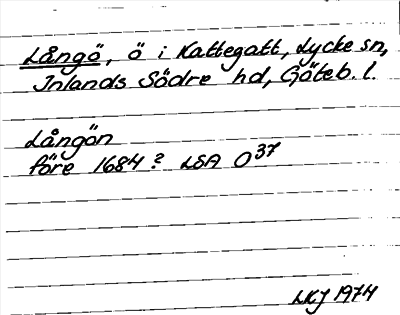 Långö, ö i Kattegatt, Lycke sn,
Inlands Södre hd, Göteb. l.
Långön
före 1684? LSA O37
LKJ 1974